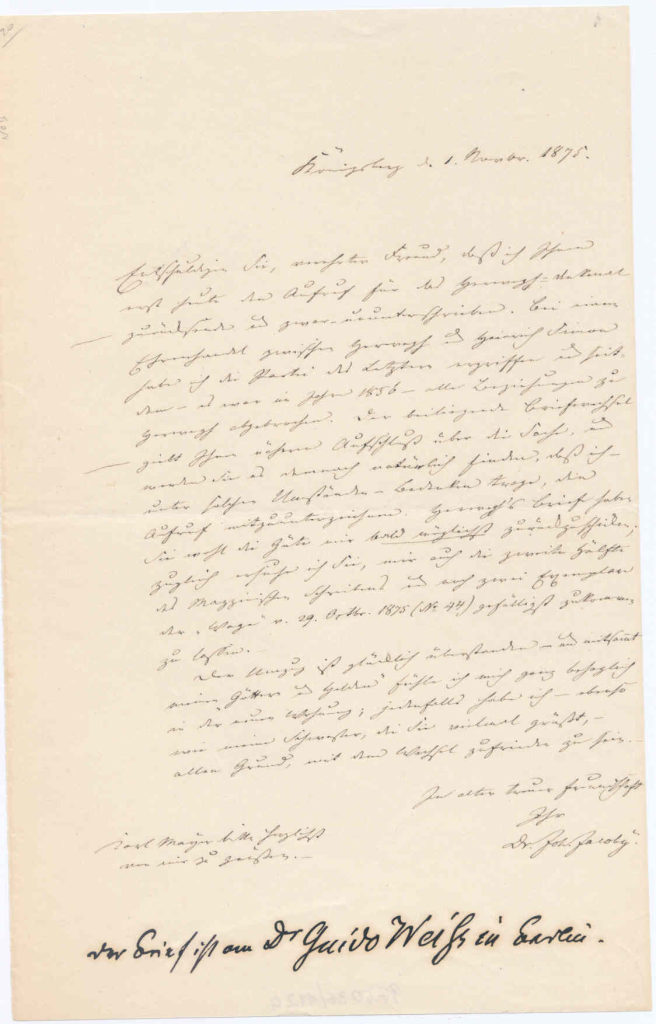 Königsberg d. 1. Novbr. 1875.
Entschuldigen Sie, verehrter Freund, daß ich Ihnen
erst heute den Aufruf für das Herwegh-Denkmal
zurücksende und zwar ununterschrieben. Bei einem
Ehrenhandel zwischen Herwegh und Heinrich Simon
habe ich die Partei des Letztern ergriffen und seit-
dem – es war im Jahre 1856 – alle Beziehungen zu
Herwegh abgebrochen. Der beiliegende Briefwechsel
giebt Ihnen nähern Aufschluß über die Sache, und
werden Sie es demnach natürlich finden, daß ich –
unter solchen Umständen – Bedenken trage, den
Aufruf mitzuunterzeichnen. Herwegh's Brief haben
Sie wohl die Güte mir bald möglichst zurückzuschicken;
zugleich ersuche ich Sie, mir auch die zweite Hälfte
des Mazzinischen Schreibens und noch zwei Exemplare
der „Wage" v. 29. Octbr. 1875 (No 44) gefälligst zukommen
zu lassen. –
Der Umzug ist glücklich überstanden – und mitsammt
meinen „Göttern und Helden" fühle ich mich ganz behaglich
in der neuen Wohnung; jedenfalls habe ich – ebenso
wie meine Schwester, die Sie vielmal grüßt, –
allen Grund, mit dem Wechsel zufrieden zu sein. –
In alter treuer Freundschaft
Ihr
Dr. Joh. Jacoby.
Karl Mayer bitte herzlichst
von mir zu grüßen. –
der Brief ist an Dr Guido Weiss in Berlin.